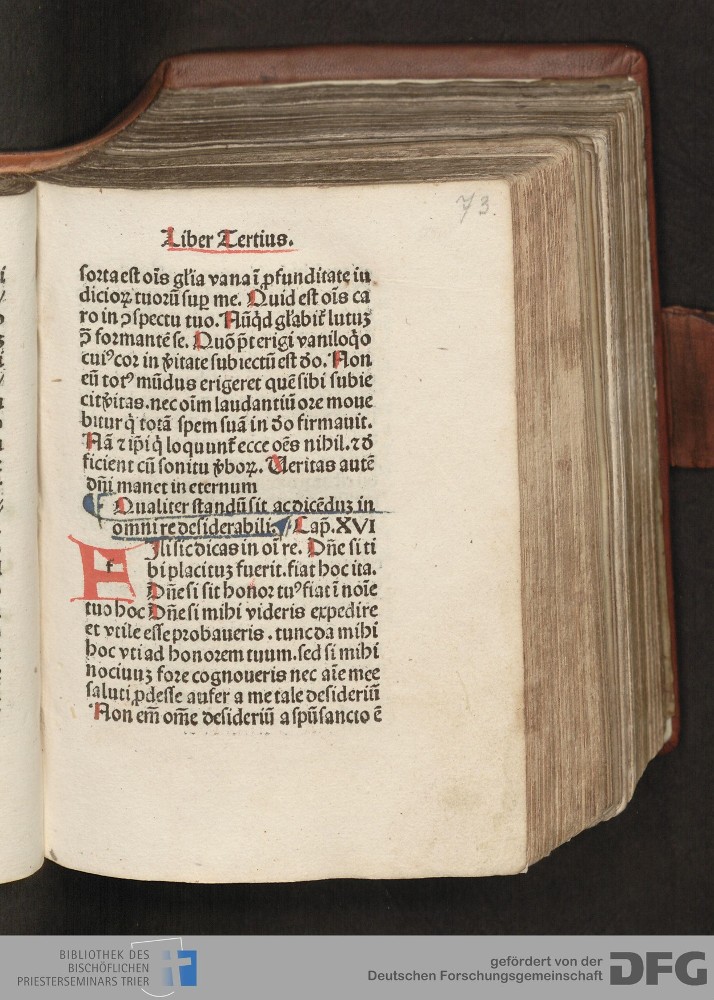 73.
Liber Tertius.
sorta est oīs gl'ia vana ī ꝓfunditate iu
dicioꝝ tuorū suꝑ me. Quid est oīs ca
ro in ꝯspectu tuo. Nūq̇d gl'abit̄ lutuꝫ
ꝯ̄ formantē se. Quō p̄t erigi vaniloq̇o
cuiꝰ cor in v̓itate subiectū est do. Non
eū totꝰ mūdus erigeret quē sibi subie
cit v̓itas. nec oīm laudantiū ore moue
bitur q̇ totā spem suā in do firmauit.
Nā ⁊ ip̄i q̇ loquunt̄ ecce oēs nihil. ⁊ d
ficient cū sonitu v̓boꝝ. Veritas autē
dn̄i manet in eternum
Qualiter standū sit ac dicēduꝫ in
omni re desiderabili. Cap. XVI
f
Ili sic dicas in oī re. Dn̄e si ti
bi placituꝫ fuerit. fiat hoc ita.
Dn̄e si sit honor tuꝰ fiat ī noīe
tuo hoc Dn̄e si mihi videris expedire
et vtile esse probaueris. tunc da mihi
hoc vti ad honorem tuum. sed si mihi
nociuuꝫ fore cognoueris nec aīe mee
saluti ꝓdesse aufer a me tale desideriū
Non em̄ om̄e desideriū a spū sancto ē
BIBLIOTHEK DES
BISCHÖFLICHEN
PRIESTERSEMINARS TRIER
gefördert von der
Deutschen Forschungsgemeinschaft
DFG